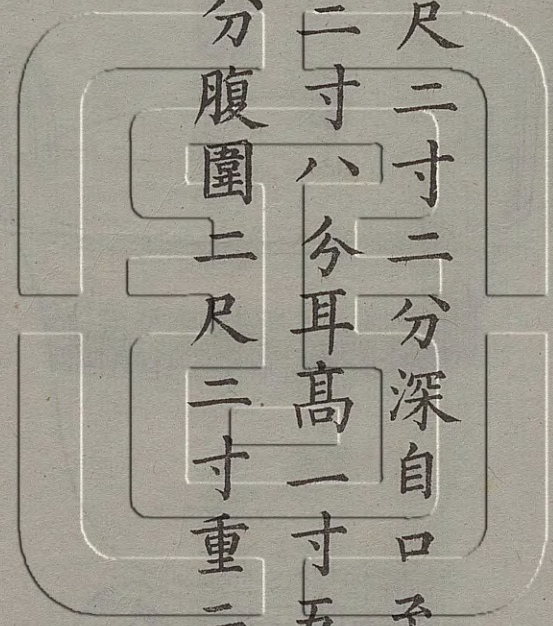 尺二寸二分深自口至
二寸八分耳髙一寸五
分腹圍二尺二寸重